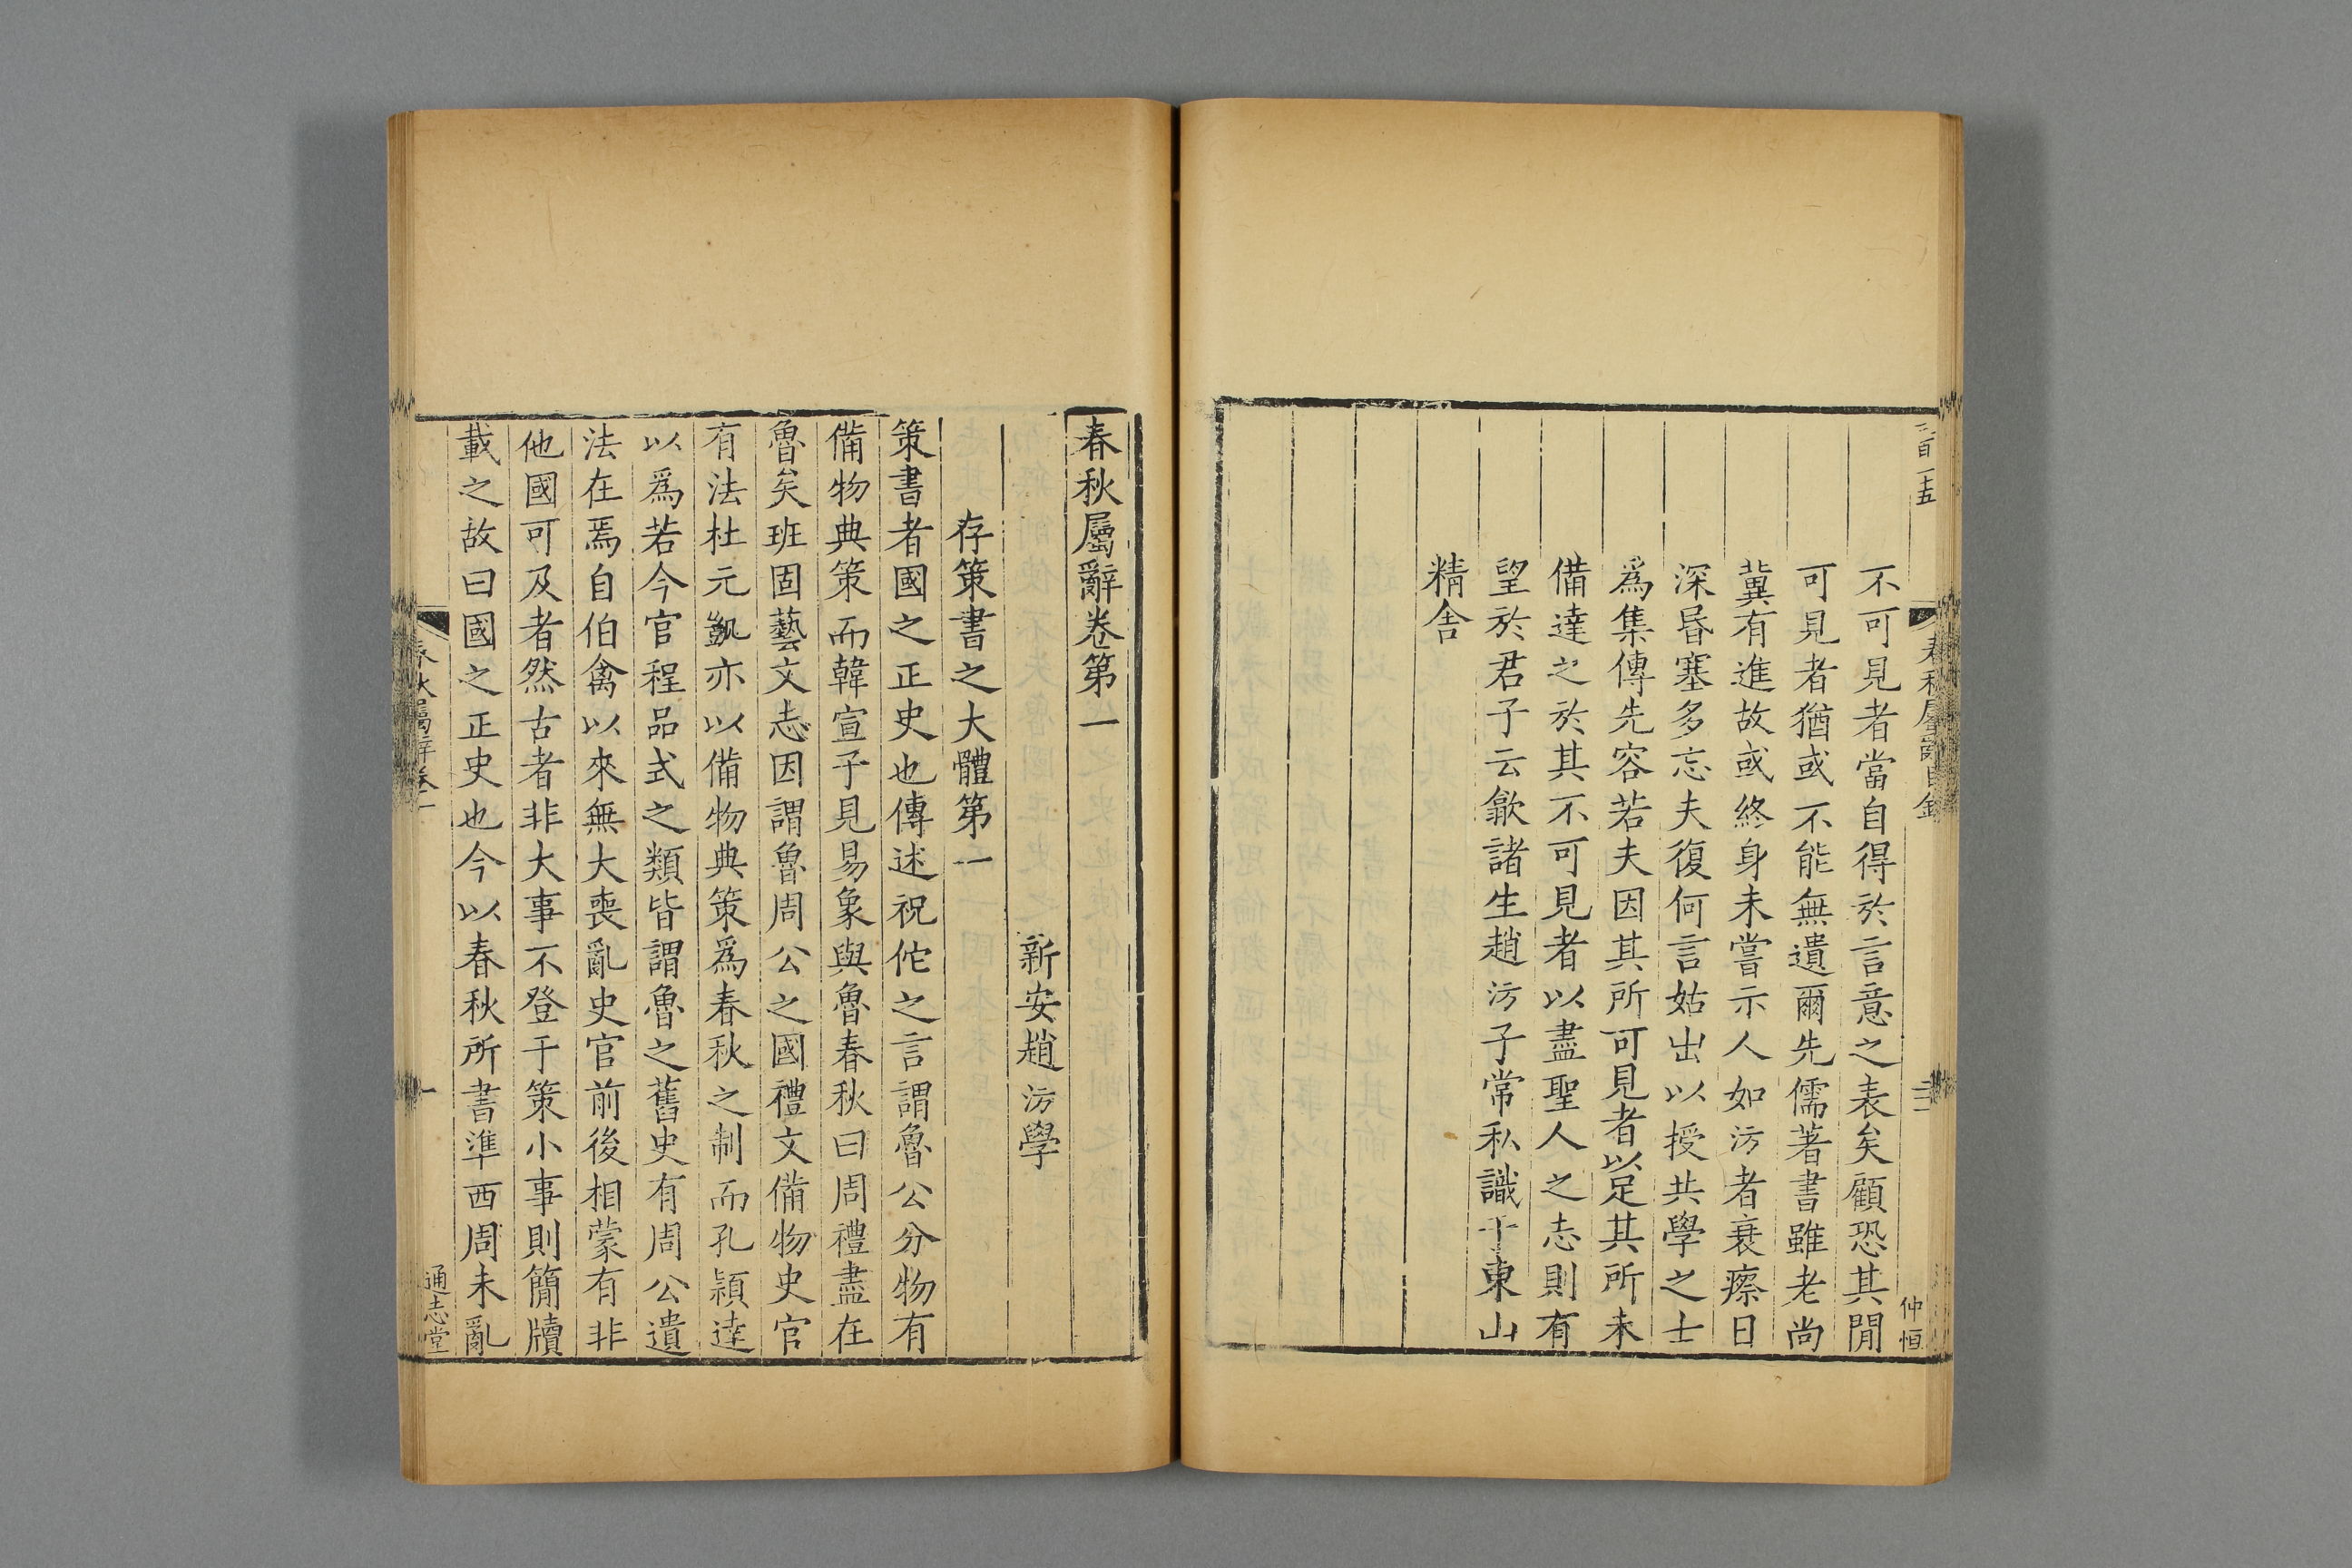 二百一十五
春秋屬辭目錄
仲恒
不可見者當自得於言意之表矣顧恐其閒
可見者猶或不能無遺爾先儒著書雖老尚
冀有進故或終身未嘗示人如汸者衰瘵日
深昬塞多忘夫復何言姑出以授共學之士
爲集傳先容若夫因其所可見者以足其所未
備達之於其不可見者以盡聖人之志則有
望於君子云歙諸生趙汸子常私識于東山
精舍
春秋屬辭卷第一
新安趙汸學
存策書之大體第一
策書者國之正史也傳述祝佗之言謂魯公分物有
備物典策而韓宣子見易象與魯春秋曰周禮盡在
魯矣班固藝文志因謂魯周公之國禮文備物史官
有法杜元凱亦以備物典策爲春秋之制而孔頴達
以爲若今官程品式之類皆謂魯之舊史有周公遺
法在焉自伯禽以來無大喪亂史官前後相蒙有非
他國可及者然古者非大事不登于策小事則簡牘
載之故曰國之正史也今以春秋所書準西周未亂
春秋屬辭卷一
一
通志堂